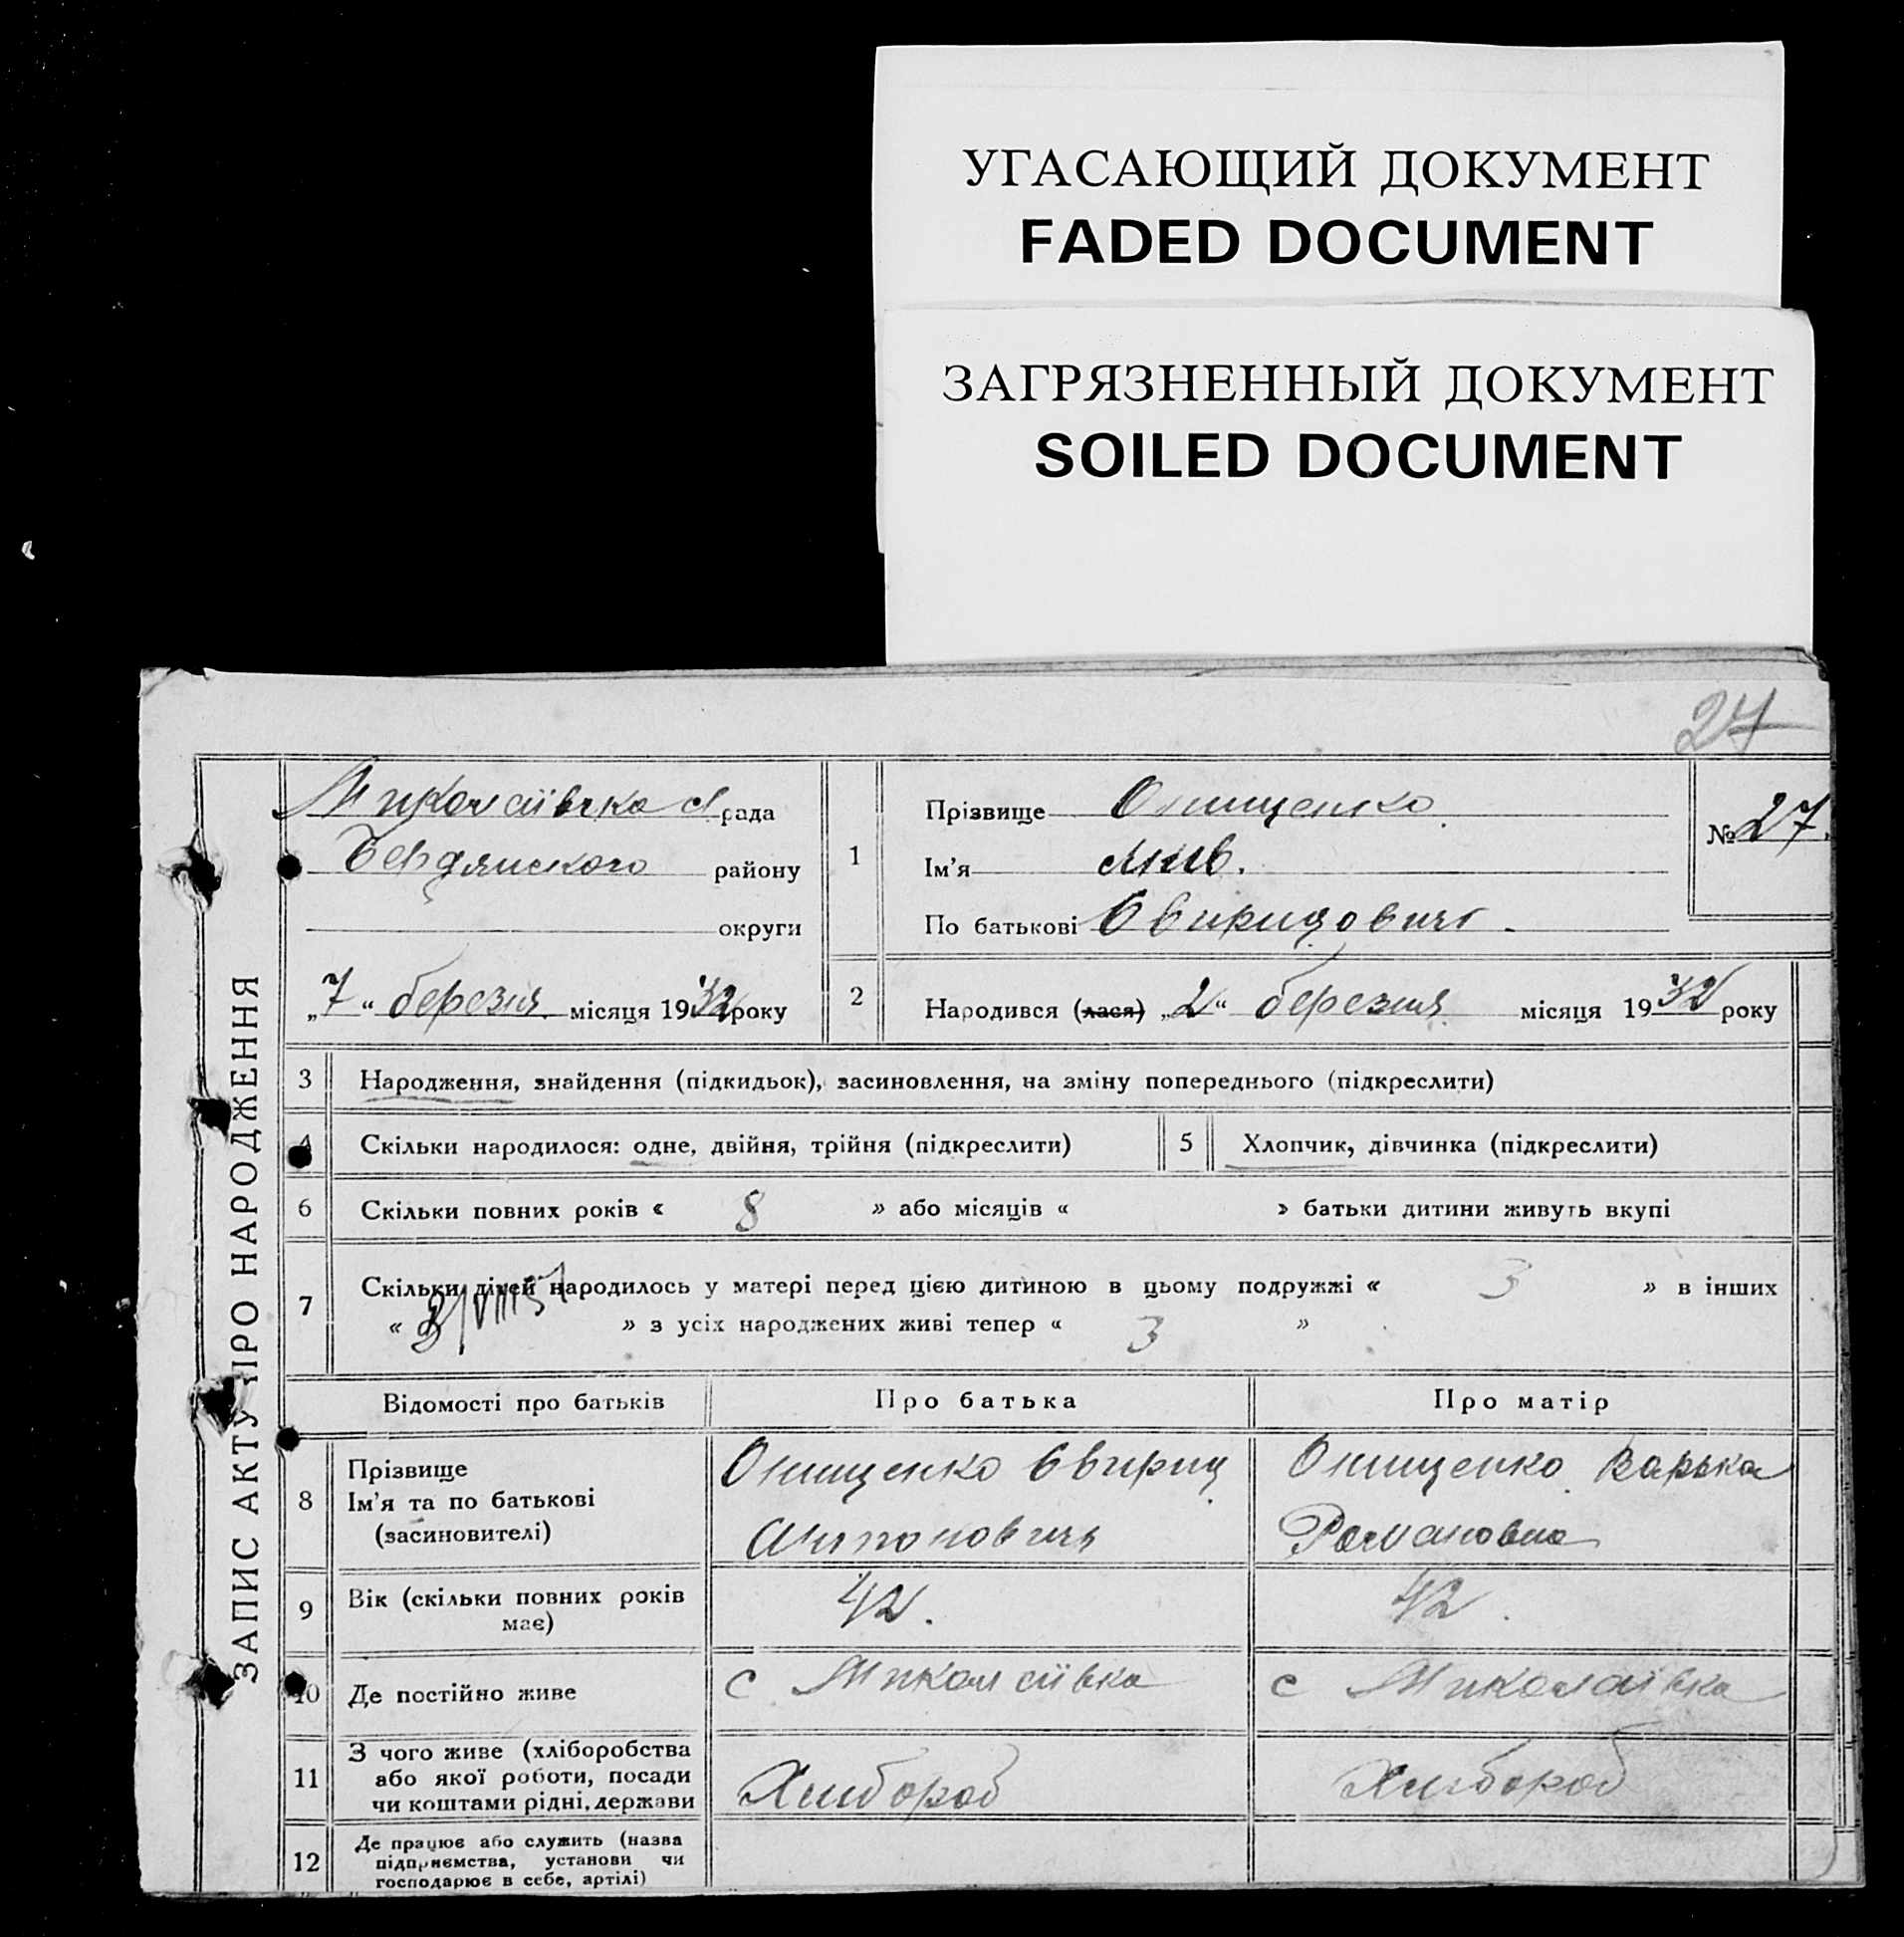 УГАСАЮЩИЙ ДОКУМЕНТ
FADED DOCUMENT
ЗАГРЯЗНЕННЫЙ ДОКУМЕНТ
SOILED DOCUMENT
27
ЗАПИС АКТУ ПРО НАРОДЖЕННЯ
Миколаївська рада
Бердянського району
округи
„7“ березня місяця 1932 року
1
Прізвище Онищенко
Ім'я
По батькові Свиридович
№ 27.
2
Народився (лася) „2“ березня місяця 1932 року
3 Народження, знайдення (підкидьок), засиновлення, на зміну попереднього (підкреслити)
4 Скільки народилося: одне, двійня, трійня (підкреслити)
5 Хлопчик, дівчинка (підкреслити)
6 Скільки повних років « 8 » або місяців « » батьки дитини живуть вкупі
7 Скільки дітей народилось у матері перед цією дитиною в цьому подружжі « 3 » в інших
« » з усіх народжених живі тепер « 3 »
Відомості про батьків
Про батька
Про матір
8
Прізвище
Ім'я та по батькові
(засиновителі)
Онищенко Свирид
Антонович
Онищенко Варька
Романовна
9
Вік (скільки повних років
має)
42.
42.
10 Де постійно живе
с Миколаївка
с Миколаївка
11
З чого живе (хліборобства
або якої роботи, посади
чи коштами рідні, держави
Хлибороб
Хлибороб
12
Де працює або служить (назва
підприємства, установи чи
господарює в себе, артілі)